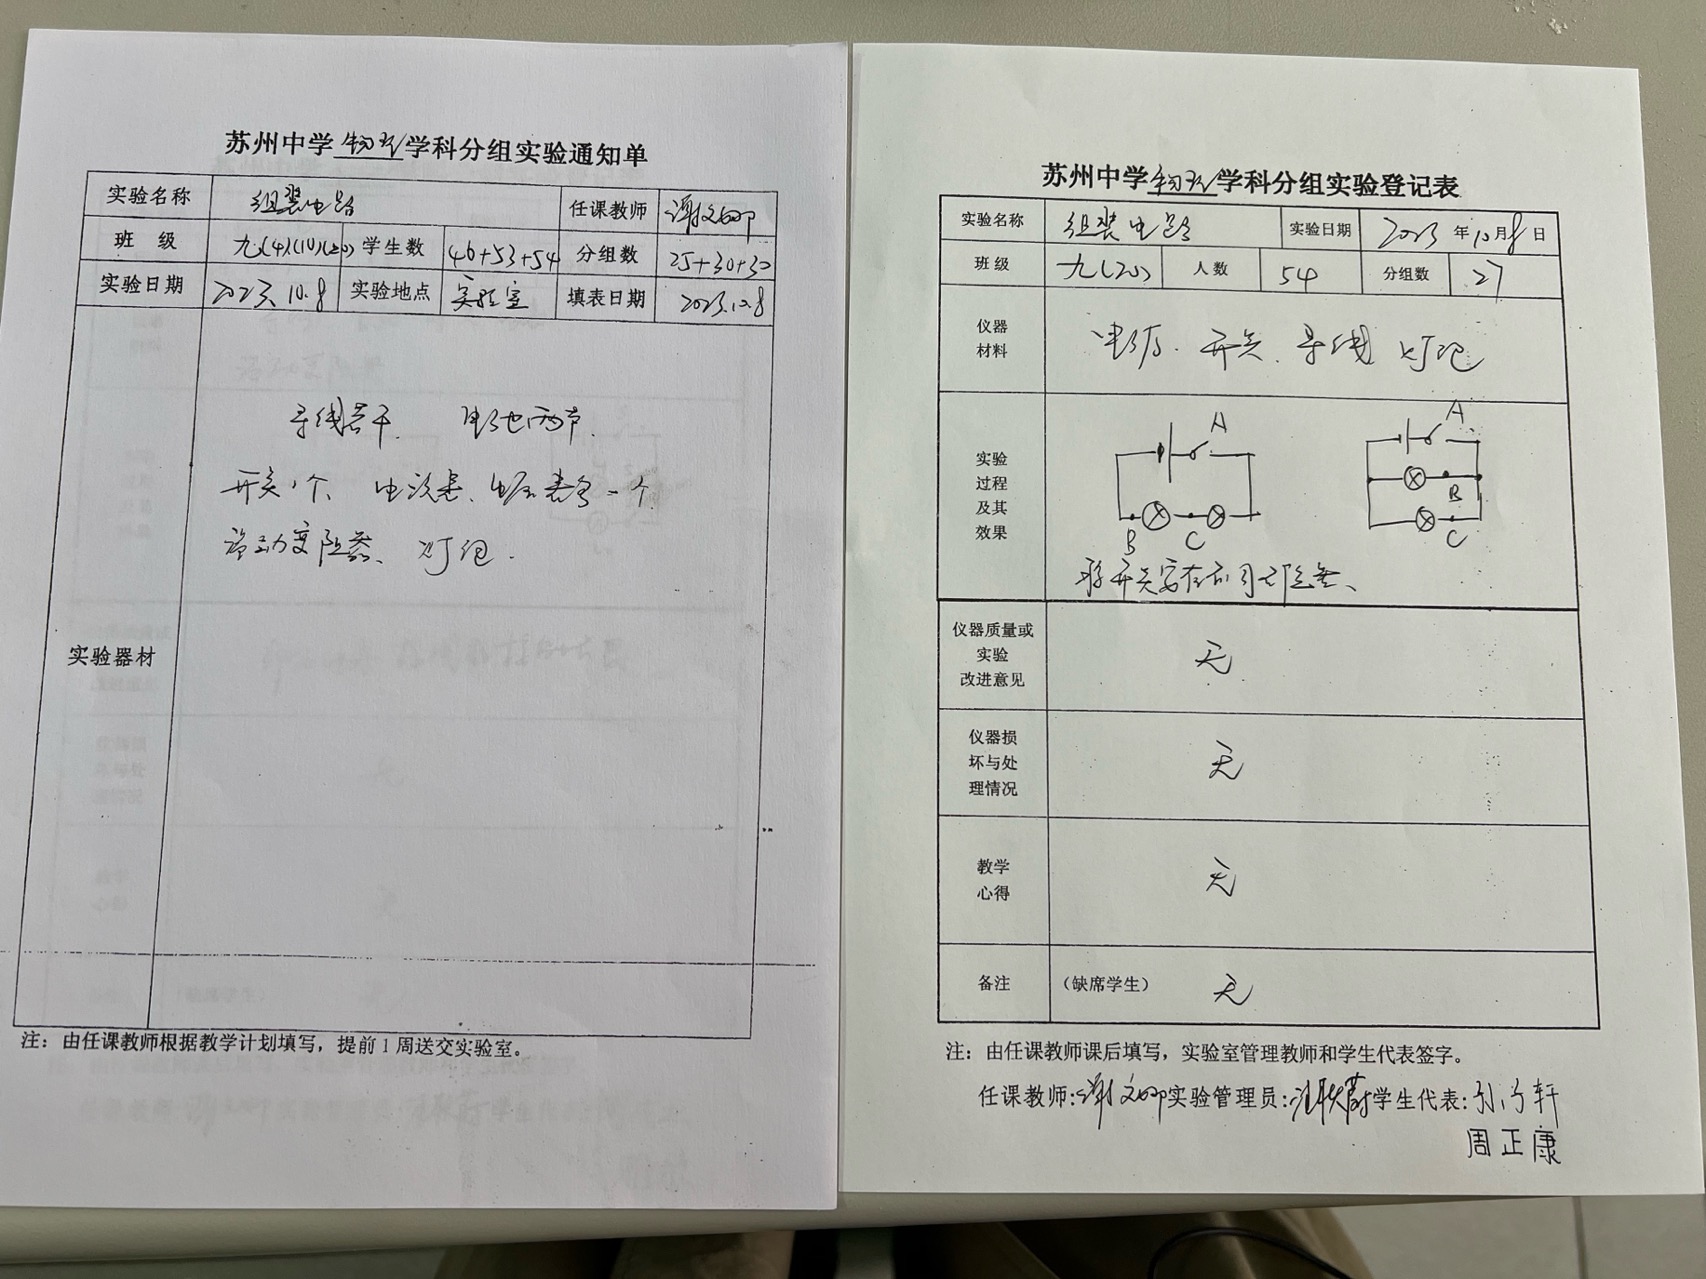 苏州中学物理学科分组实验通知单
实验名称 组装电路 任课教师
班 级 九(4)(10)(20) 学生数 46+53+54 分组数 25+30+30
实验日期 2023.10.8 实验地点 实验室 填表日期 2023.10.8
实验器材
导线若干. 电池两节.
开关1个、电流表、电压表各一个
滑动变阻器、灯泡.
注：由任课教师根据教学计划填写，提前1周送交实验室。
苏州中学物理学科分组实验登记表
实验名称 组装电路 实验日期 2023年10月8日
班级 九(20) 人数 54 分组数 27
仪器
材料
开关、导线 灯泡
实验
过程
及其
效果
A
B
C
A
B
C
将开关安在不同
仪器质量或
实验
改进意见
无
仪器损
坏与处
理情况
无
教学
心得
无
备注 （缺席学生） 无
注：由任课教师课后填写，实验室管理教师和学生代表签字。
任课教师: 实验管理员: 学生代表:
周正康